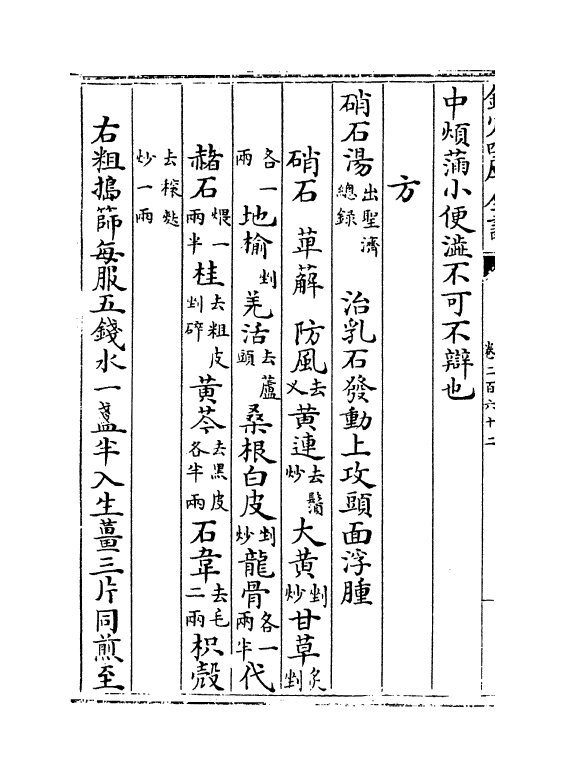 卷二百六十二
中煩滿小便澁不可不辯也
方
硝石湯出聖濟總録　治乳石發動上攻頭面浮腫
硝石　萆薢　防風去义　黄連去鬚炒　大黄剉炒　甘草炙剉
各一兩　地榆剉　羌活去蘆頭　桑根白皮剉炒　龍骨各一兩半　代
赭石煨一兩半　桂去粗皮剉碎　黄芩去黑皮各半兩　石韋去毛二兩　枳殼
去穣麩炒一兩
右粗搗篩每服五錢水一盞半入生薑三片同煎至